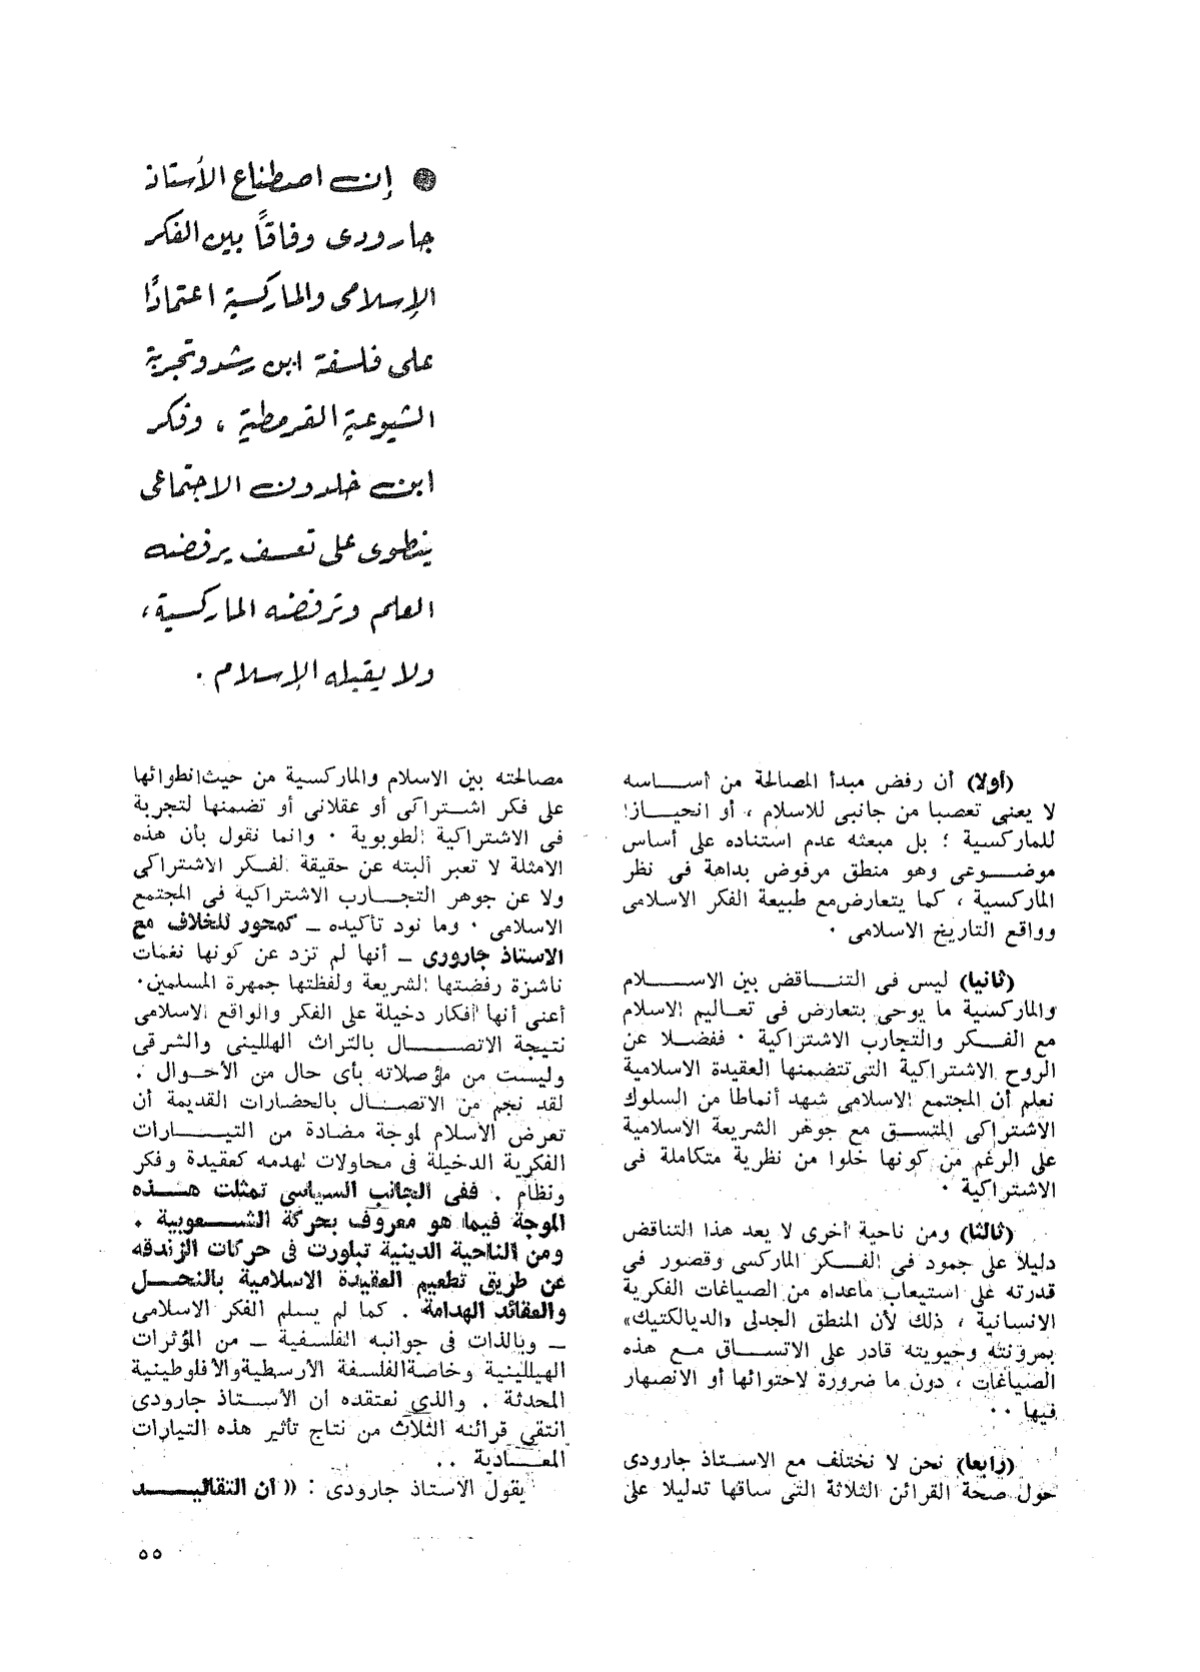 ● إن اصطناع الأستاذ
جارودى وفاقاً بين الفكر
الإسلامى والماركسية اعتماداً
على فلسفة ابن رشد وتجربة
الشيوعية القرمطية ، وفكر
ابن خلدون الاجتماعى
ينطوى على تعسف يرفضه
العلم وترفضه الماركسية ،
ولا يقبله الإسلام .
(أولا) أن رفض مبدأ المصالحة من أساسه
لا يعنى تعصبا من جانبى للاسلام ، أو انحيازا
للماركسية ؛ بل مبعثه عدم استناده على أساس
موضوعى وهو منطق مرفوض بداهة فى نظر
الماركسية ، كما يتعارض مع طبيعة الفكر الاسلامى
وواقع التاريخ الاسلامى .
(ثانيا) ليس فى التناقض بين الاسلام
والماركسية ما يوحى بتعارض فى تعاليم الاسلام
مع الفكر والتجارب الاشتراكية . ففضلا عن
الروح الاشتراكية التى تتضمنها العقيدة الاسلامية
نعلم أن المجتمع الاسلامى شهد أنماطا من السلوك
الاشتراكى المتسق مع جوهر الشريعة الاسلامية
على الرغم من كونها خلوا من نظرية متكاملة فى
الاشتراكية .
(ثالثا) ومن ناحية أخرى لا يعد هذا التناقض
دليلا على جمود فى الفكر الماركسى وقصور فى
قدرته على استيعاب ماعداه من الصياغات الفكرية
الانسانية ، ذلك لأن المنطق الجدلى «الديالكتيك»
بمرونته وحيويته قادر على الاتساق مع هذه
الصياغات ، دون ما ضرورة لاحتوائها أو الانصهار
فيها ..
(رابعا) نحن لا نختلف مع الاستاذ جارودى
حول صحة القرائن الثلاثة التى ساقها تدليلا على
مصالحته بين الاسلام والماركسية من حيث انطوائها
على فكر اشتراكى أو عقلانى أو تضمنها لتجربة
فى الاشتراكية الطوبوية . وانما نقول بأن هذه
الامثلة لا تعبر ألبته عن حقيقة الفكر الاشتراكى
ولا عن جوهر التجارب الاشتراكية فى المجتمع
الاسلامى . وما نود تأكيده – كمحور للخلاف مع
الاستاذ جارورى – أنها لم تزد عن كونها نغمات
ناشزة رفضتها الشريعة ولفظتها جمهرة المسلمين .
أعنى أنها أفكار دخيلة على الفكر والواقع الاسلامى
نتيجة الاتصال بالتراث الهللينى والشرقى
وليست من مؤصلاته بأى حال من الأحوال .
لقد نجم من الاتصال بالحضارات القديمة أن
تعرض الاسلام لموجة مضادة من التيارات
الفكرية الدخيلة فى محاولات لهدمه كعقيدة وفكر
ونظام . ففى الجانب السياسى تمثلت هذه
الموجة فيما هو معروف بحركة الشعوبية .
ومن الناحية الدينية تبلورت فى حركات الزندقه
عن طريق تطعيم العقيدة الاسلامية بالنحل
والعقائد الهدامة . كما لم يسلم الفكر الاسلامى
– وبالذات فى جوانبه الفلسفية – من المؤثرات
الهيللينية وخاصة الفلسفة الأرسطية والافلوطينية
المحدثة . والذى نعتقده ان الأستاذ جارودى
انتقى قرائنه الثلاث من نتاج تأثير هذه التيارات
المعادية ..
يقول الاستاذ جارودى : « ان التقاليد
٥٥